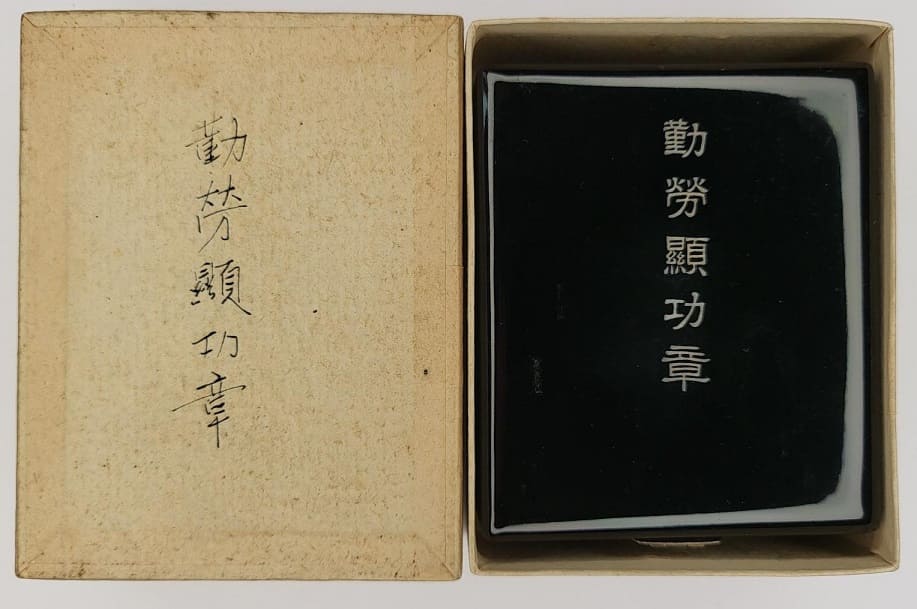 勤勞顯功章
勤勞顯功章